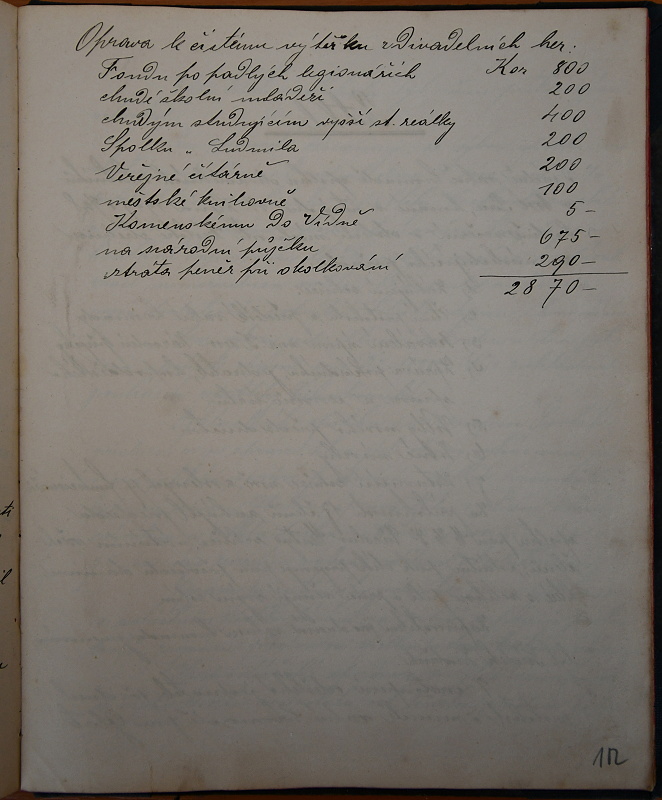 Oprava k čistému výtěžku z Divadelních her:
Fondu po padlých legionářích Kor 800
chudé školní mládeži 200
chudým studujícím vyšší st. reálky 400
Spolku „ Ludmila 200
Veřejné čítárně 200
městské knihovně 100
Komenskému do Vídně 5–
na národní půjčku 675–
ztráta peněz při okolkování 290–
2870–